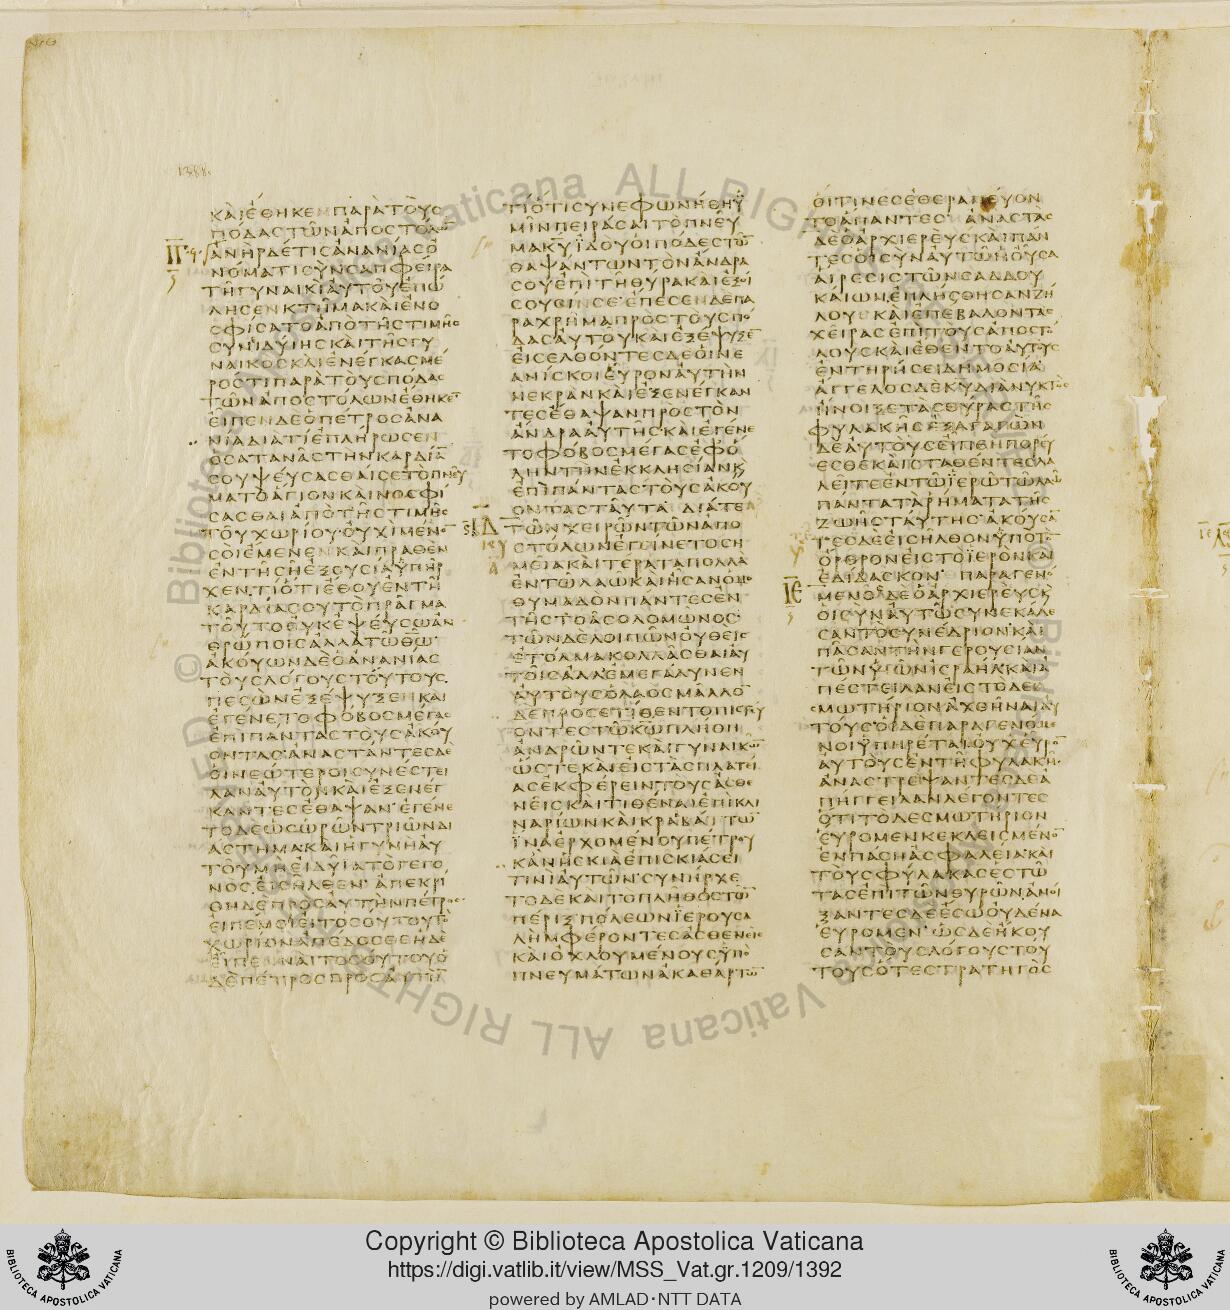 1388
ΚΑΙΕΘΗΚΕΝΠΑΡΑΤΟΥΣ
ΠΟΔΑΣΤΩΝΑΠΟΣΤΟΛΩ
ΑΝΗΡΔΕΤΙΣΑΝΑΝΙΑΣΟ
ΝΟΜΑΤΙΣΥΝΣΑΠΦΕΙΡΑ
ΤΗΓΥΝΑΙΚΙΑΥΤΟΥΕΠΩ
ΛΗΣΕΝΚΤΗΜΑΚΑΙΕΝΟ
ΣΦΙΣΑΤΟΑΠΟΤΗΣΤΙΜΗΣ
ΣΥΝΙΔΥΙΗΣΚΑΙΤΗΣΓΥ
ΝΑΙΚΟΣΚΑΙΕΝΕΓΚΑΣΜΕ
ΡΟΣΤΙΠΑΡΑΤΟΥΣΠΟΔΑΣ
ΤΩΝΑΠΟΣΤΟΛΩΝΕΘΗΚΕ
ΕΙΠΕΝΔΕΟΠΕΤΡΟΣΑΝΑ
ΝΙΑΔΙΑΤΙΕΠΛΗΡΩΣΕΝ
ΟΣΑΤΑΝΑΣΤΗΝΚΑΡΔΙΑ
ΣΟΥΨΕΥΣΑΣΘΑΙΣΕΤΟΠΝΕΥ
ΜΑΤΟΑΓΙΟΝΚΑΙΝΟΣΦΙ
ΣΑΣΘΑΙΑΠΟΤΗΣΤΙΜΗΣ
ΤΟΥΧΩΡΙΟΥΟΥΧΙΜΕΝΟ
ΣΟΙΕΜΕΝΕΝΚΑΙΠΡΑΘΕΝ
ΕΝΤΗΣΗΕΞΟΥΣΙΑΫΠΗΡ
ΧΕΝΤΙΟΤΙΕΘΟΥΕΝΤΗ
ΚΑΡΔΙΑΣΟΥΤΟΠΡΑΓΜΑ
ΤΟΥΤΟΟΥΚΕΨΕΥΣΩΑΝ
ΘΡΩΠΟΙΣΑΛΛΑΤΩΘΩ
ΑΚΟΥΩΝΔΕΟΑΝΑΝΙΑΣ
ΤΟΥΣΛΟΓΟΥΣΤΟΥΤΟΥΣ
ΠΕΣΩΝΕΞΕΨΥΞΕΝΚΑΙ
ΕΓΕΝΕΤΟΦΟΒΟΣΜΕΓΑΣ
ΕΠΙΠΑΝΤΑΣΤΟΥΣΑΚΟΥ
ΟΝΤΑΣΑΝΑΣΤΑΝΤΕΣΔΕ
ΟΙΝΕΩΤΕΡΟΙΣΥΝΕΣΤΕΙ
ΛΑΝΑΥΤΟΝΚΑΙΕΞΕΝΕΓ
ΚΑΝΤΕΣΕΘΑΨΑΝΕΓΕΝΕ
ΤΟΔΕΩΣΩΡΩΝΤΡΙΩΝΔΙ
ΑΣΤΗΜΑΚΑΙΗΓΥΝΗΑΥ
ΤΟΥΜΗΕΙΔΥΙΑΤΟΓΕΓΟ
ΝΟΣΕΙΣΗΛΘΕΝΑΠΕΚΡΙ
ΘΗΔΕΠΡΟΣΑΥΤΗΝΠΕΤΡΟΣ
ΕΙΠΕΜΟΙΕΙΤΟΣΟΥΤΟΥΤΟ
ΧΩΡΙΟΝΑΠΕΔΟΣΘΕΗΔΕ
ΕΙΠΕΝΝΑΙΤΟΣΟΥΤΟΥΟ
ΔΕΠΕΤΡΟΣΠΡΟΣΑΥΤΗ
ΤΙΟΤΙΣΥΝΕΦΩΝΗΘΗΫ
ΜΙΝΠΕΙΡΑΣΑΙΤΟΠΝΕΥ
ΜΑΚΥΙΔΟΥΟΙΠΟΔΕΣΤΩ
ΘΑΨΑΝΤΩΝΤΟΝΑΝΔΡΑ
ΣΟΥΕΠΙΤΗΘΥΡΑΚΑΙΕΞΟΙ
ΣΟΥΣΙΝΣΕΕΠΕΣΕΝΔΕΠΑ
ΡΑΧΡΗΜΑΠΡΟΣΤΟΥΣΠΟ
ΔΑΣΑΥΤΟΥΚΑΙΕΞΕΨΥΞΕ
ΕΙΣΕΛΘΟΝΤΕΣΔΕΟΙΝΕ
ΑΝΙΣΚΟΙΕΥΡΟΝΑΥΤΗΝ
ΝΕΚΡΑΝΚΑΙΕΞΕΝΕΓΚΑΝ
ΤΕΣΕΘΑΨΑΝΠΡΟΣΤΟΝ
ΑΝΔΡΑΑΥΤΗΣΚΑΙΕΓΕΝΕ
ΤΟΦΟΒΟΣΜΕΓΑΣΕΦΟ
ΛΗΝΤΗΝΕΚΚΛΗΣΙΑΝΚ
ΕΠΙΠΑΝΤΑΣΤΟΥΣΑΚΟΥ
ΟΝΤΑΣΤΑΥΤΑΔΙΑΤΕ
ΤΩΝΧΕΙΡΩΝΤΩΝΑΠΟ
ΣΤΟΛΩΝΕΓΕΙΝΕΤΟΣΗ
ΜΕΙΑΚΑΙΤΕΡΑΤΑΠΟΛΛΑ
ΕΝΤΩΛΑΩΚΑΙΗΣΑΝΟΜΟ
ΘΥΜΑΔΟΝΠΑΝΤΕΣΕΝ
ΤΗΣΤΟΑΣΟΛΟΜΩΝΟΣ
ΤΩΝΔΕΛΟΙΠΩΝΟΥΘΕΙΣ
ΕΤΟΛΜΑΚΟΛΛΑΣΘΑΙΑΥ
ΤΟΙΣΑΛΛΕΜΕΓΑΛΥΝΕΝ
ΑΥΤΟΥΣΟΛΑΟΣΜΑΛΛΟ
ΔΕΠΡΟΣΕΤΙΘΕΝΤΟΠΙΣΤΕΥ
ΟΝΤΕΣΤΩΚΩΠΛΗΘΗ
ΑΝΔΡΩΝΤΕΚΑΙΓΥΝΑΙΚΩ
ΩΣΤΕΚΑΙΕΙΣΤΑΣΠΛΑΤΕΙ
ΑΣΕΚΦΕΡΕΙΝΤΟΥΣΑΣΘΕ
ΝΕΙΣΚΑΙΤΙΘΕΝΑΙΕΠΙΚΛΙ
ΝΑΡΙΩΝΚΑΙΚΡΑΒΑΤΤΩ
ΪΝΑΕΡΧΟΜΕΝΟΥΠΕΤΡΟΥ
ΚΑΝΗΣΚΙΑΕΠΙΣΚΙΑΣΕΙ
ΤΙΝΙΑΥΤΩΝΣΥΝΗΡΧΕ
ΤΟΔΕΚΑΙΤΟΠΛΗΘΟΣΤΩ
ΠΕΡΙΞΠΟΛΕΩΝΪΕΡΟΥΣΑ
ΛΗΜΦΕΡΟΝΤΕΣΑΣΘΕΝΕΙΣ
ΚΑΙΟΧΛΟΥΜΕΝΟΥΣΫΠΟ
ΠΝΕΥΜΑΤΩΝΑΚΑΘΑΡΤΩ
ΟΙΤΙΝΕΣΕΘΕΡΑΠΕΥΟΝ
ΤΟΑΠΑΝΤΕΣΑΝΑΣΤΑΣ
ΔΕΟΑΡΧΙΕΡΕΥΣΚΑΙΠΑΝ
ΤΕΣΟΙΣΥΝΑΥΤΩΗΟΥΣΑ
ΑΙΡΕΣΙΣΤΩΝΣΑΔΔΟΥ
ΚΑΙΩΝΕΠΛΗΣΘΗΣΑΝΖΗ
ΛΟΥΚΑΙΕΠΕΒΑΛΟΝΤΑΣ
ΧΕΙΡΑΣΕΠΙΤΟΥΣΑΠΟΣΤΟ
ΛΟΥΣΚΑΙΕΘΕΝΤΟΑΥΤΟΥΣ
ΕΝΤΗΡΗΣΕΙΔΗΜΟΣΙΑ
ΑΓΓΕΛΟΣΔΕΚΥΔΙΑΝΥΚΤΟΣ
ΗΝΟΙΞΕΤΑΣΘΥΡΑΣΤΗΣ
ΦΥΛΑΚΗΣΕΞΑΓΑΓΩΝ
ΔΕΑΥΤΟΥΣΕΙΠΕΝΠΟΡΕΥ
ΕΣΘΕΚΑΙΣΤΑΘΕΝΤΕΣΛΑ
ΛΕΙΤΕΕΝΤΩΪΕΡΩΤΩΛΑΩ
ΠΑΝΤΑΤΑΡΗΜΑΤΑΤΗΣ
ΖΩΗΣΤΑΥΤΗΣΑΚΟΥΣΑ
ΤΕΣΔΕΕΙΣΗΛΘΟΝΫΠΟΤΟ
ΟΡΘΡΟΝΕΙΣΤΟΪΕΡΟΝΚΑΙ
ΕΔΙΔΑΣΚΟΝΠΑΡΑΓΕΝΟ
ΜΕΝΟΣΔΕΟΑΡΧΙΕΡΕΥΣΚ
ΟΙΣΥΝΑΥΤΩΣΥΝΕΚΑΛΕ
ΣΑΝΤΟΣΥΝΕΔΡΙΟΝΚΑΙ
ΠΑΣΑΝΤΗΝΓΕΡΟΥΣΙΑΝ
ΤΩΝΫΙΩΝΙΣΡΑΗΛΚΑΙΑ
ΠΕΣΤΕΙΛΑΝΕΙΣΤΟΔΕΣ
ΜΩΤΗΡΙΟΝΑΧΘΗΝΑΙΑΥ
ΤΟΥΣΟΙΔΕΠΑΡΑΓΕΝΟΜΕ
ΝΟΙΫΠΗΡΕΤΑΙΟΥΧΕΥΡΟ
ΑΥΤΟΥΣΕΝΤΗΦΥΛΑΚΗ
ΑΝΑΣΤΡΕΨΑΝΤΕΣΔΕΑ
ΠΗΓΓΕΙΛΑΝΛΕΓΟΝΤΕΣ
ΟΤΙΤΟΔΕΣΜΩΤΗΡΙΟΝ
ΕΥΡΟΜΕΝΚΕΚΛΕΙΣΜΕΝΟ
ΕΝΠΑΣΗΑΣΦΑΛΕΙΑΚΑΙ
ΤΟΥΣΦΥΛΑΚΑΣΕΣΤΩ
ΤΑΣΕΠΙΤΩΝΘΥΡΩΝΑΝΟΙ
ΞΑΝΤΕΣΔΕΕΣΩΟΥΔΕΝΑ
ΕΥΡΟΜΕΝΩΣΔΕΗΚΟΥ
ΣΑΝΤΟΥΣΛΟΓΟΥΣΤΟΥ
ΤΟΥΣΟΤΕΣΤΡΑΤΗΓΟΣ
Copyright © Biblioteca Apostolica Vaticana
https://digi.vatlib.it/view/MSS_Vat.gr.1209/1392
powered by AMLAD·NTT DATA